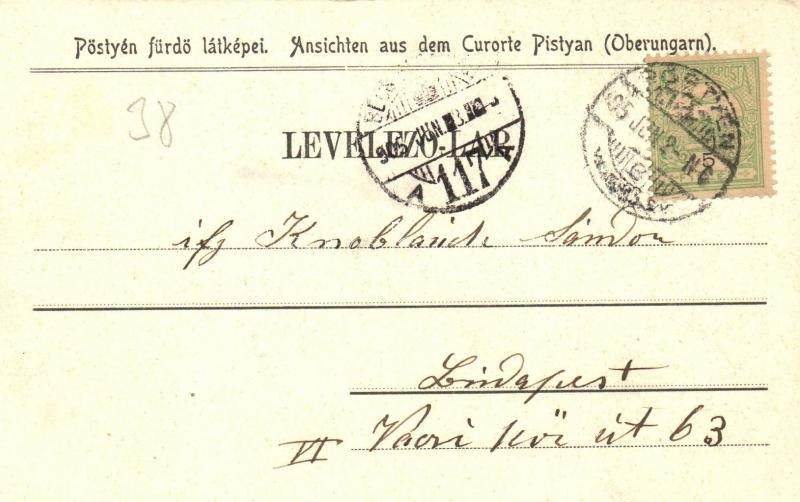 Pöstyén fürdö látképei. Ansichten aus dem Curorte Pistyan (Oberungarn).
38
LEVELEZŐ-LAP
905 JUN. 3
A 117 A
PÖSTYÉN
5
ifj Knoblauch Sándor
Budapest
VI Vaczi köz út 63